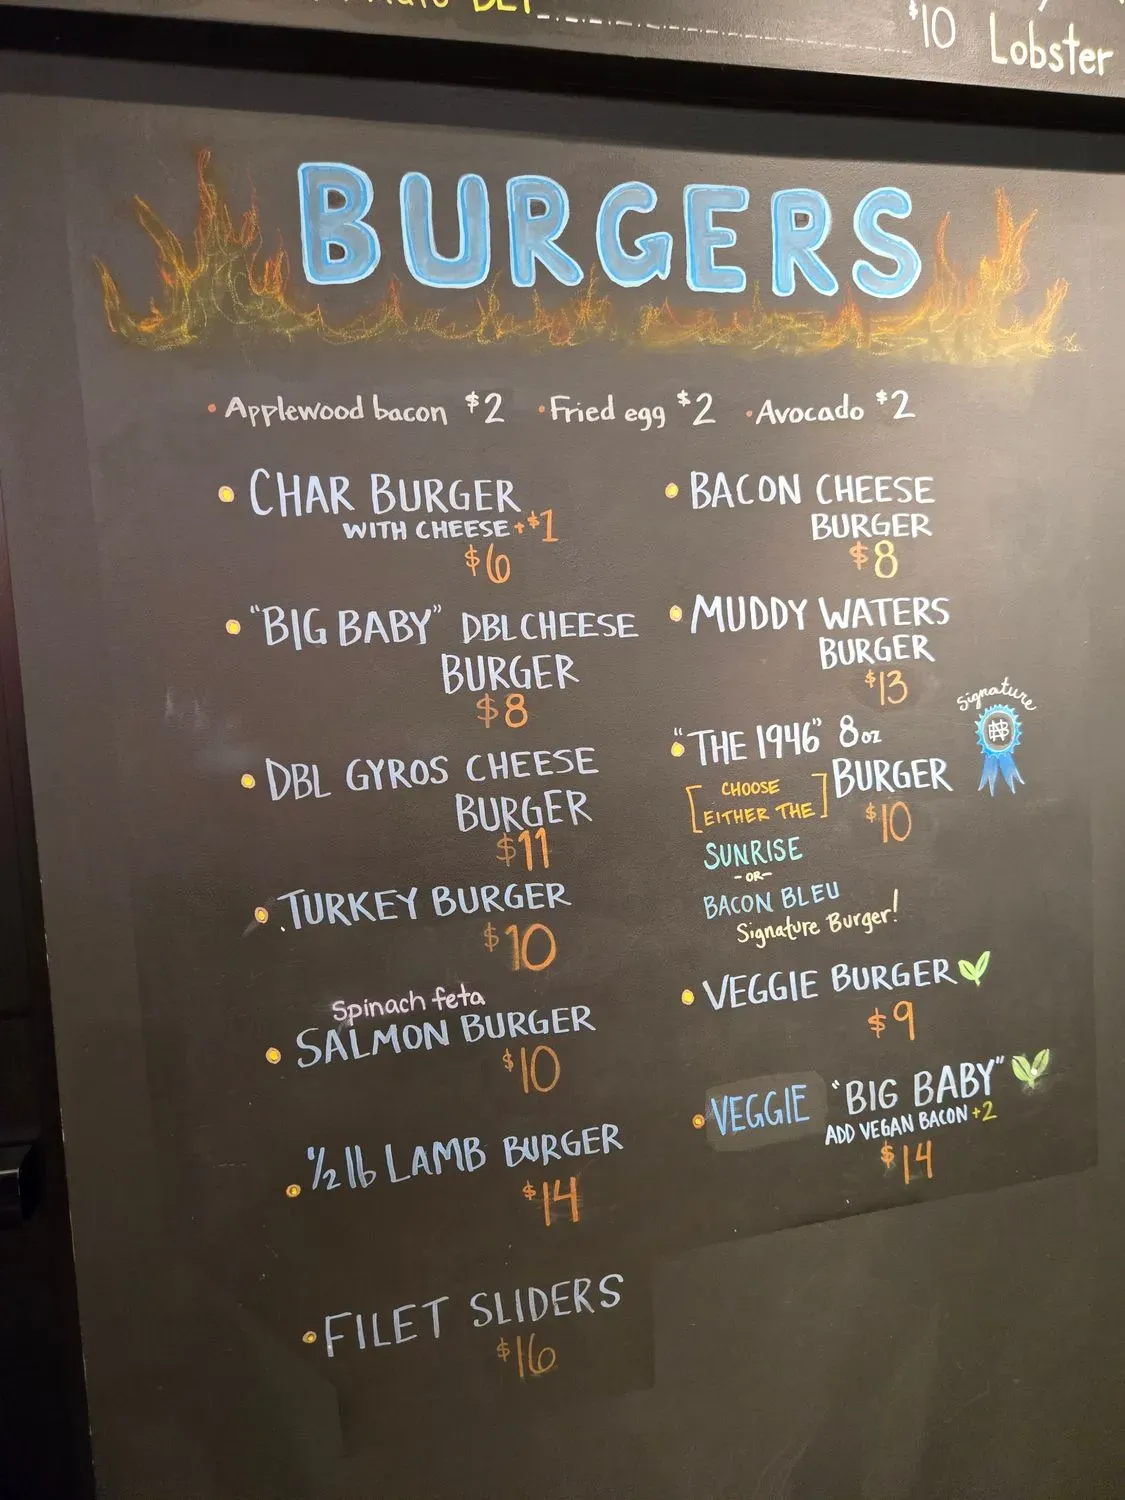 BLT $10 Lobster
BURGERS
• Applewood bacon $2 • Fried egg $2 • Avocado $2
• CHAR BURGER
WITH CHEESE +$1
$6
• "BIG BABY" DBL CHEESE
BURGER
$8
• DBL GYROS CHEESE
BURGER
$11
• TURKEY BURGER
$10
Spinach feta
• SALMON BURGER
$10
• 1/2 lb LAMB BURGER
$14
• FILET SLIDERS
$16
• BACON CHEESE
BURGER
$8
• MUDDY WATERS
BURGER
$13
Signature
• "THE 1946" 8oz
BURGER
[CHOOSE
EITHER THE]
$10
SUNRISE
-OR-
BACON BLEU
Signature Burger!
• VEGGIE BURGER
$9
• VEGGIE "BIG BABY"
ADD VEGAN BACON +2
$14